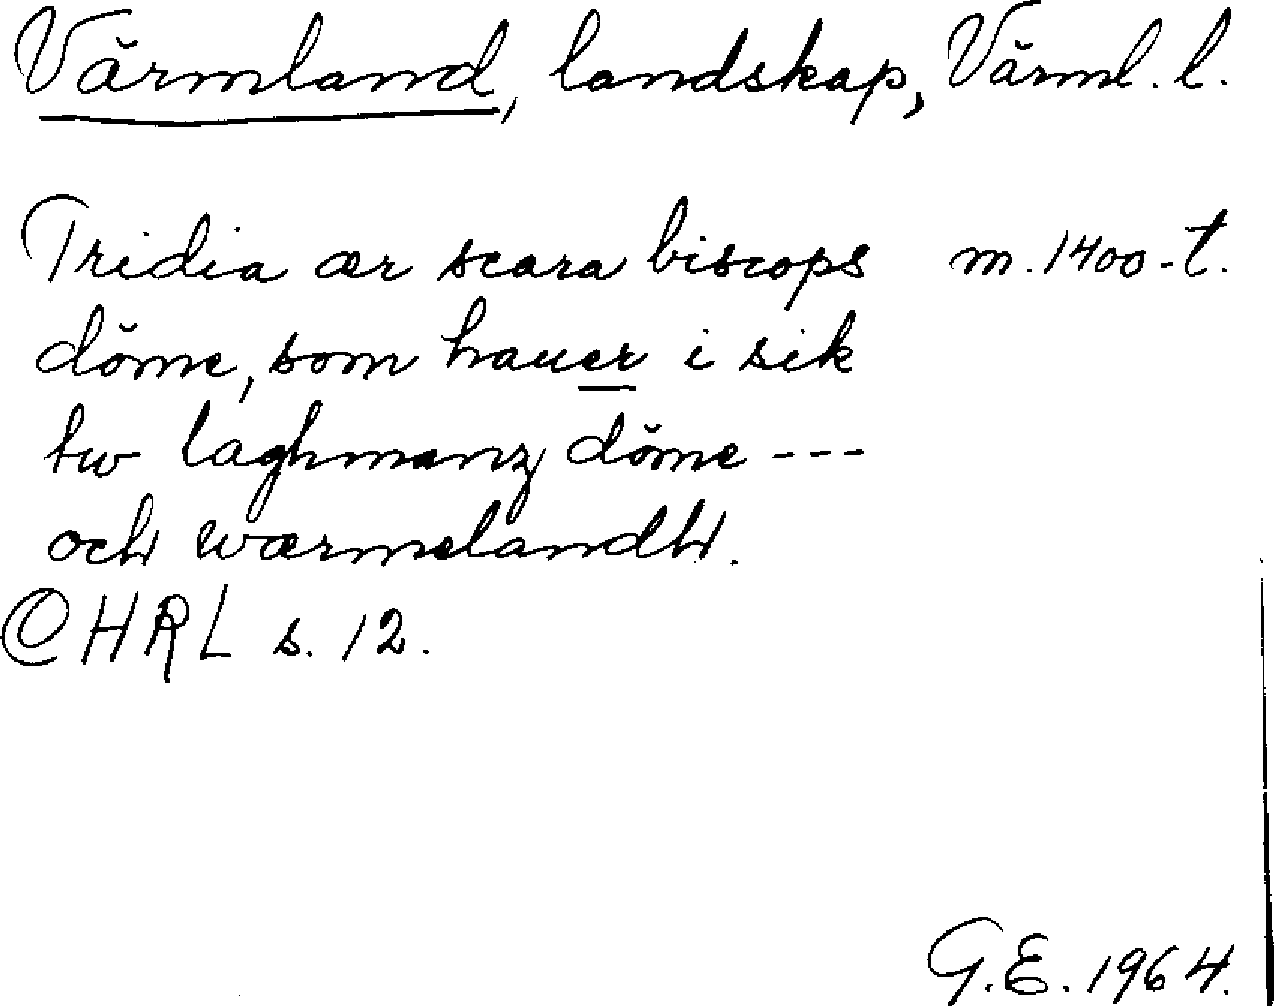 Värmland, landskap, Värml. l.
Tridia ær scara biscops m. 1400-t.
döme, som hauer i sik
tw laghmanz döme ---
och wærmelandh.
CHRL s. 12.
G.E. 1964.